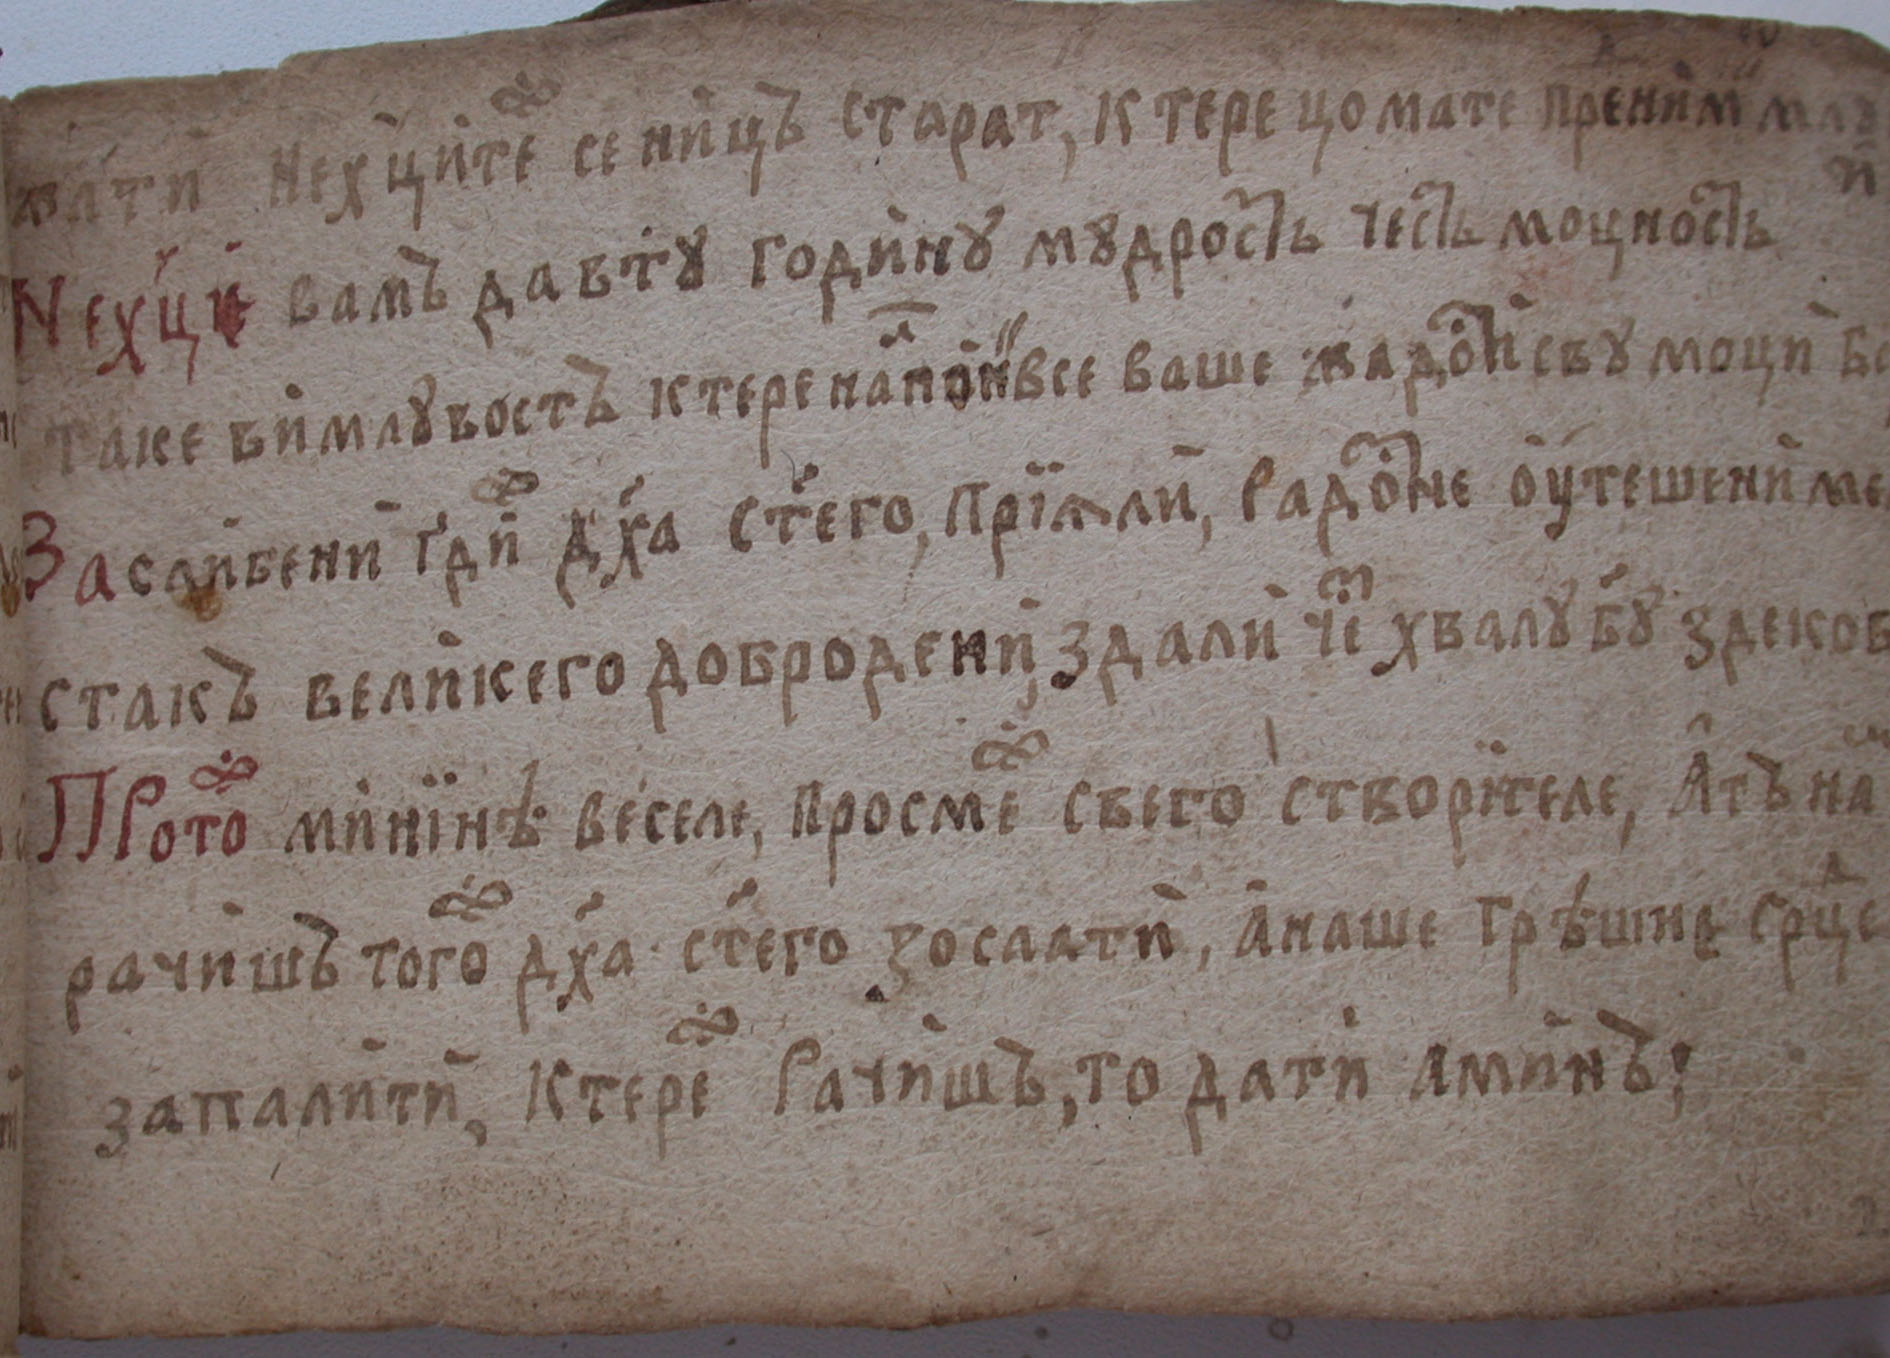 жати Нехцѝте се нѝцъ старат, ктере цо мате пренѝм млу
Нехцѝ вамъ давту годѝну мудрость честь моцность
таке вѝмлувость ктере напо́н все ваше жадости сву моци
Заслѝбени гдѝ дх҃а ст҃его, Прїꙗли, Радосне оутешени ме
стакъ велѝкего добродени, здали че хвалу бг҃у здеков
Прото мѝнїнѣ веселе, просме свего створителе, Атъ на
рачѝшъ того дх҃а ст҃его зослати, Анаше грѣшне срц҃е
запалѝти, ктере Рачѝшъ, то дати Амѝнъ!